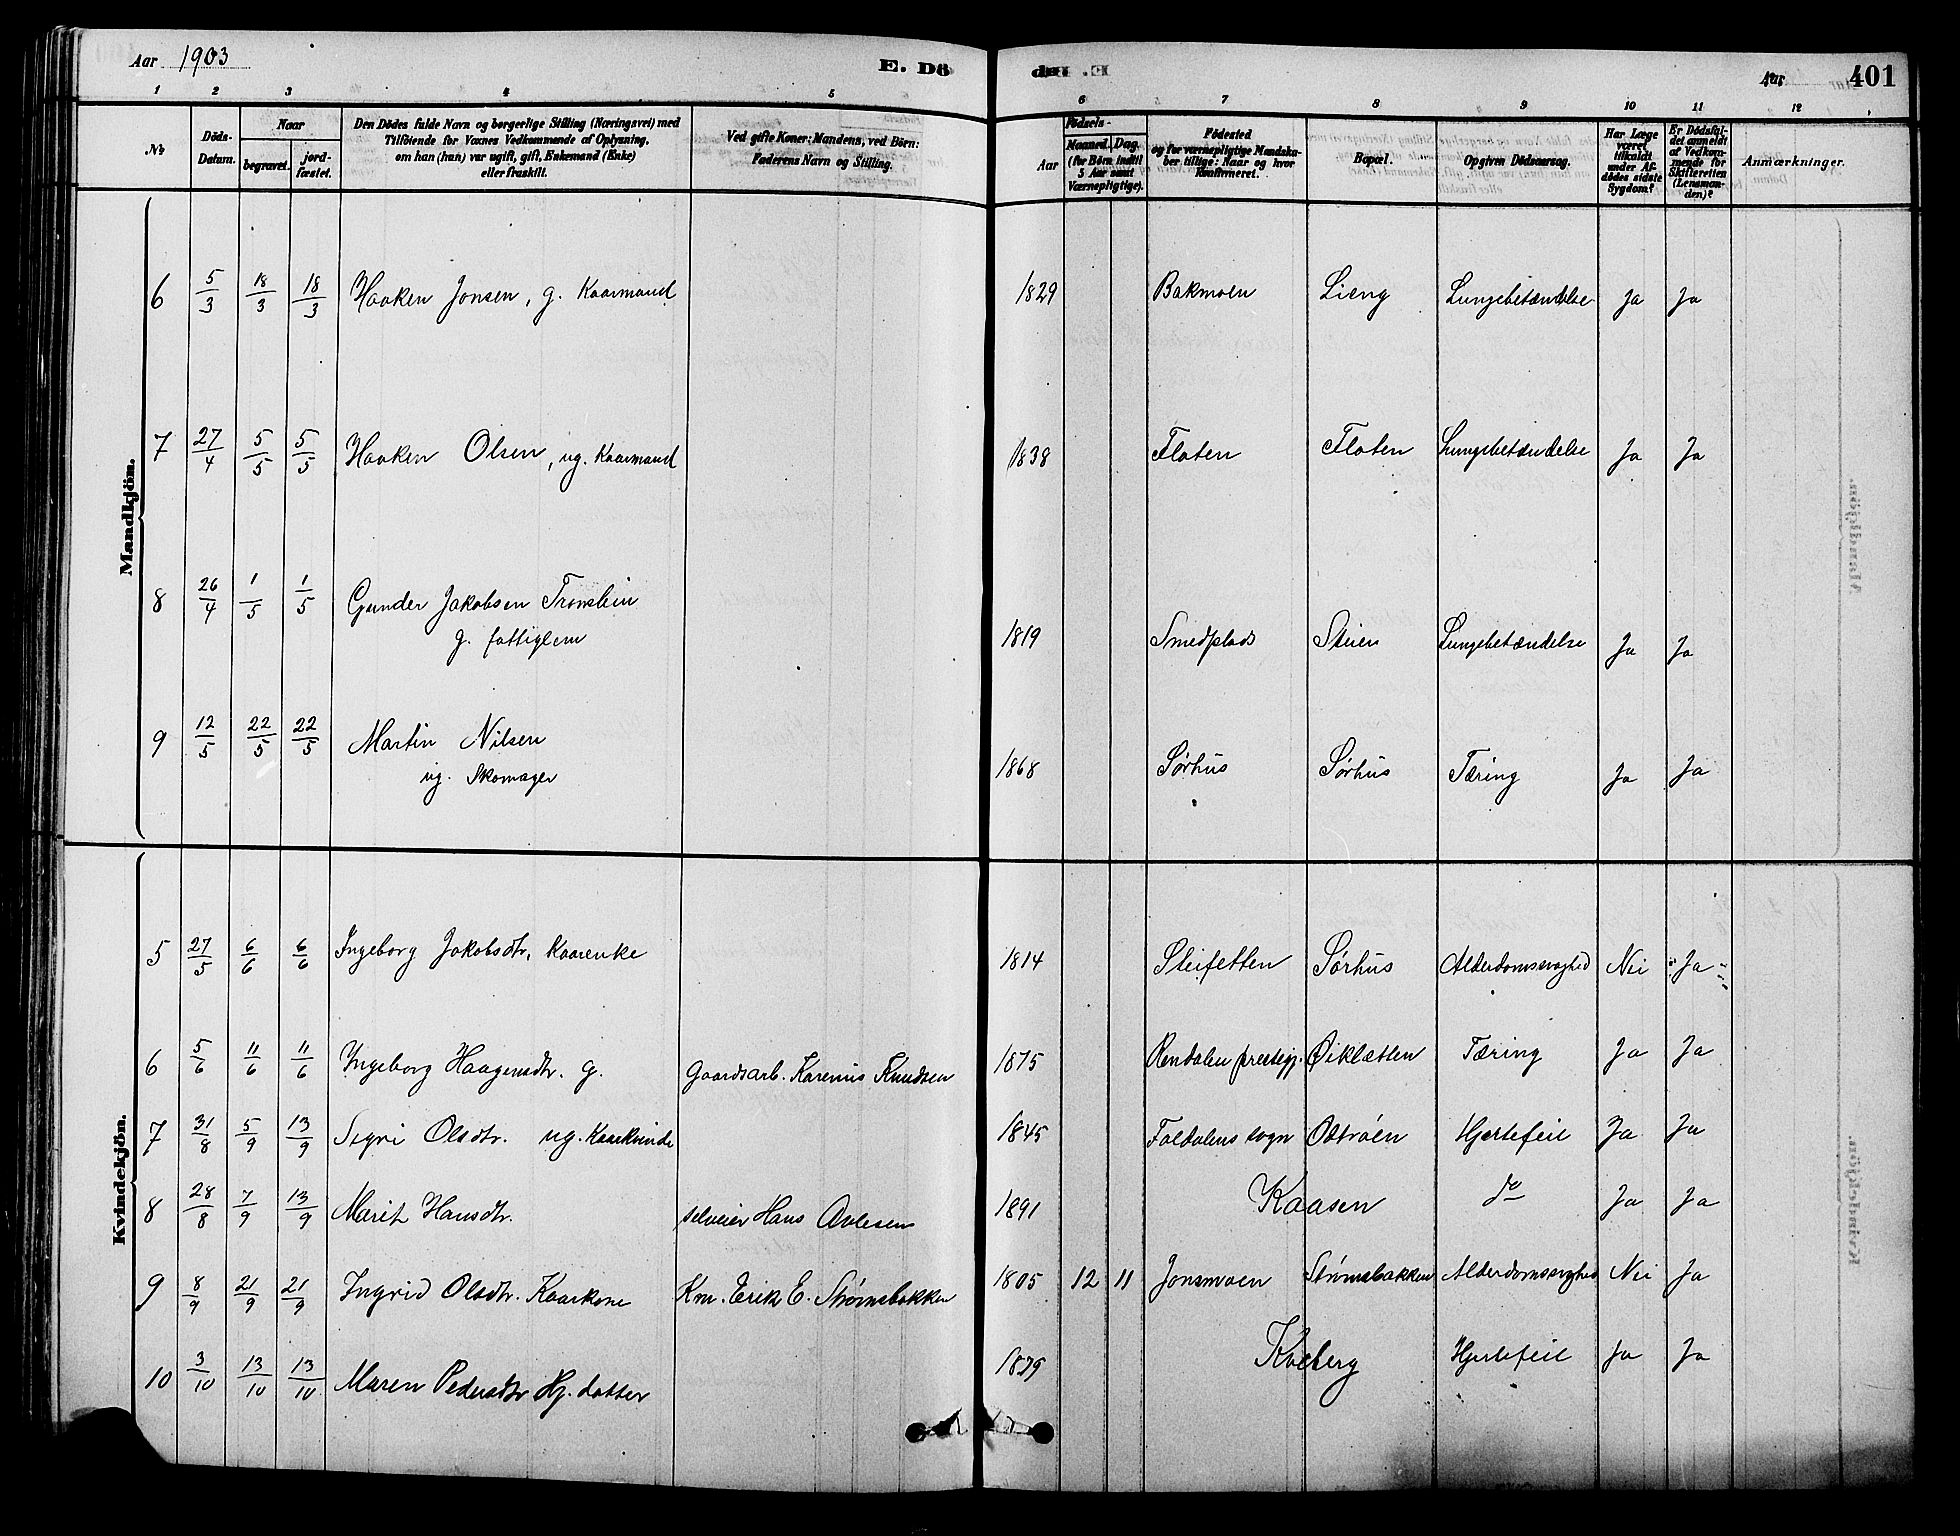 Aar 1903
E. Dö
den
Aar
401
1 2 3 4 5
6 7 8 9 10 11 12
№
Döds-Datum.
Naar
begravet.
jord-fæstet.
Den Dödes fulde Navn og borgerlige Stilling (Næringsvei) med
Tilföiende for Voxnes Vedkommende af Oplysning,
om han (hun) var ugift, gift, Enkemand (Enke)
eller fraskilt.
Ved gifte Koner: Mandens, ved Börn:
Faderens Navn og Stilling.
Födsels-
Aar
Maaned. Dag.
(for Börn indtil
5 Aar samt
Værnepligtige).
Födested
og for værnepligtige Mandska-
ber tillige: Naar og hvor
konfirmeret.
Bopæl.
Opgiven Dödsaarsag.
Har Læge
været
tilkaldt
under Af-
dödes sidste
Sygdom?
Er Dödsfal-
det anmeldt
af Vedkom-
mende for
Skifteretten
(Lensman-
den)?
Anmærkninger.
Mandkjön.
6 5/3 18/3 18/3 Haaken Jonsen, g. Kaarmand 1829 Bakmoen Lieng Lungebetændelse Ja Ja
7 27/4 5/5 5/5 Haaken Olsen, ug. Kaarmand 1838 Floten Floten Lungebetændelse Ja Ja
8 26/4 1/5 1/5 Gunder Jakobsen Tronslien
g. fattiglem 1819 Smedplads Steien Lungebetændelse Ja Ja
9 12/5 22/5 22/5 Martin Nilsen
ug. Skomager 1868 Sørhus Sørhus Tæring Ja Ja
Kvindekjön.
5 27/5 6/6 6/6 Ingeborg Jakobsdtr, Kaarenke 1814 Steifetten Sørhus Alderdomssvaghed Nei Ja
6 5/6 11/6 11/6 Ingeborg Haagensdtr. g. Gaardsarb. Karenius Knudsen 1875 Rendalen prestegj. Øiklætten Tæring Ja Ja
7 31/8 5/9 13/9 Sigri Olsdtr. ug. Kaarkvinde 1845 Foldalens sogn Odtrøen Hjertefeil Ja Ja
8 28/8 7/9 13/9 Marit Hansdtr. selveier Hans Avlesen 1891 Kaasen do Ja Ja
9 8/9 21/9 21/9 Ingrid Olsdtr. Kaarkone Km. Erik E. Strømsbakken 1805 12 11 Jonsmoen Strømsbakken Alderdomssvaghed Nei Ja
10 3/10 13/10 13/10 Maren Pedersdtr Hj. datter 1879 Kveberg Hjertefeil Ja Ja